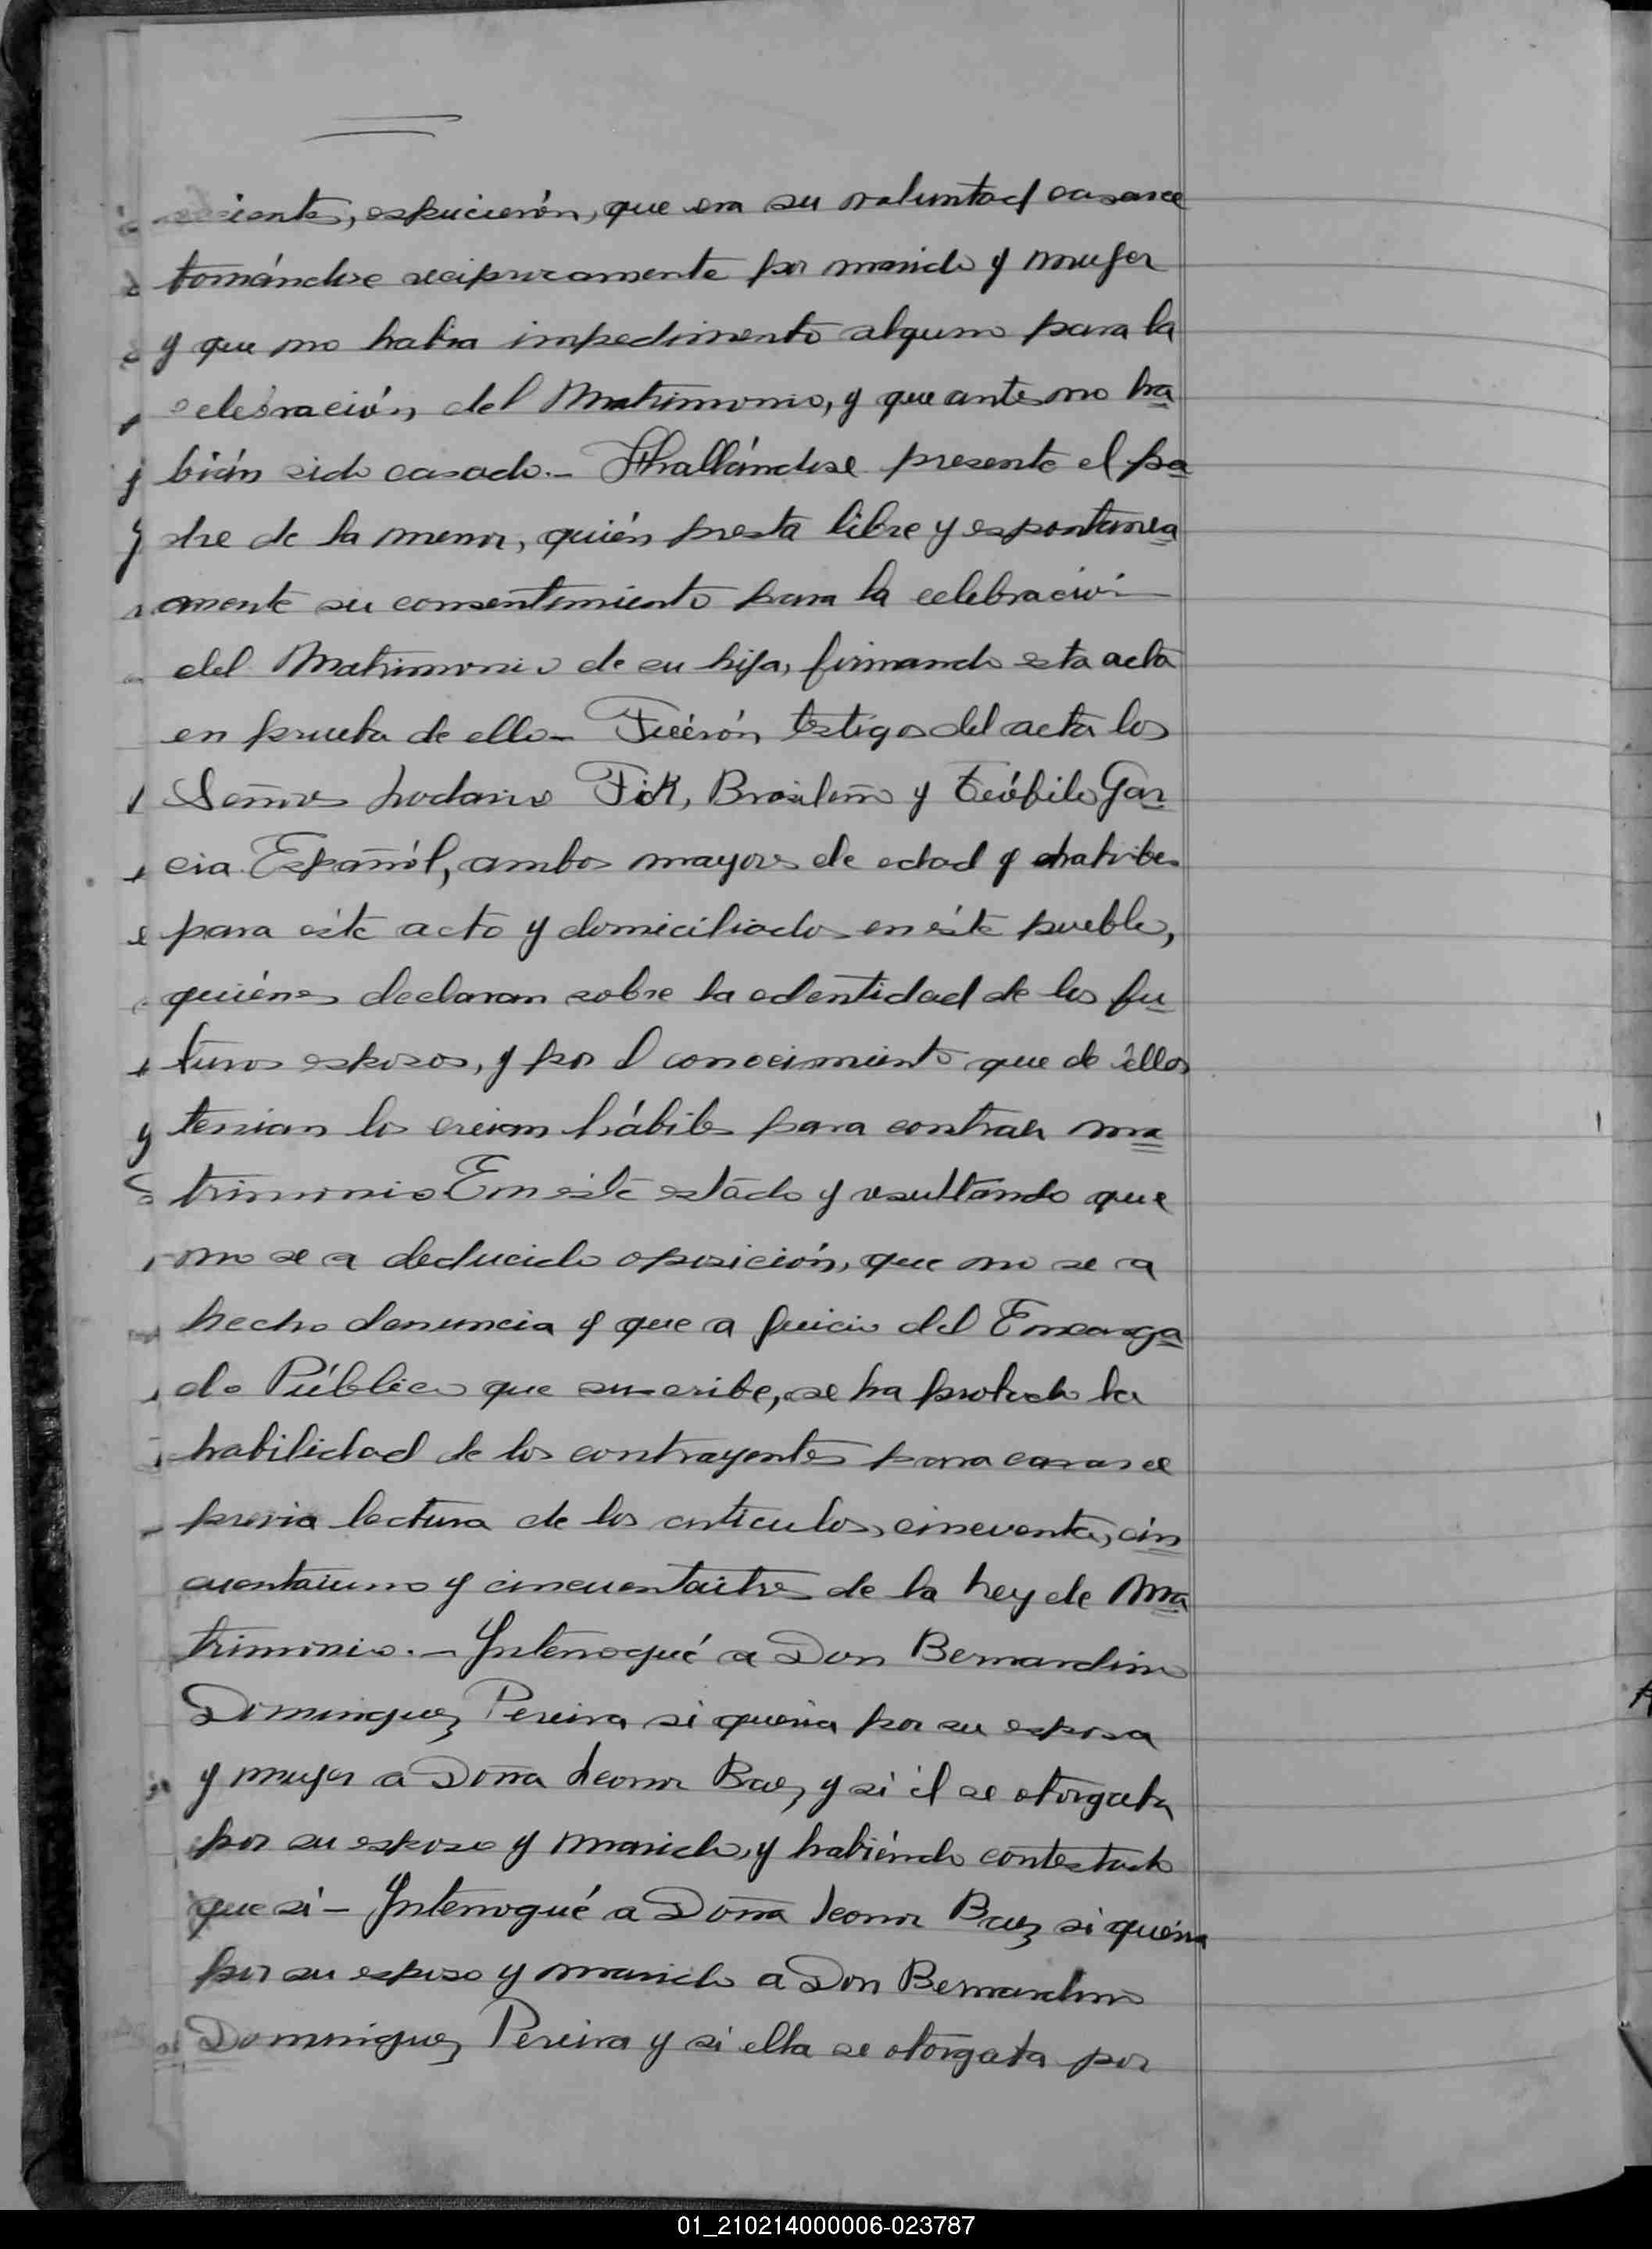 cientes, espucierón, que era su voluntad casarce
tomándose reciprocamente por marido y mujer
y que no habia impedimento alguno para la
celebración del Matrimonio, y que antes no ha
bián sido casado.- Hhallándose presente el pa
dre de la menor, quién presta libre y espontanea
amente su consentimiento para la celebración
del Matrimonio de su hija, firmando esta acta
en prueba de ello- Fuerón testigos del acta los
Señores Fick, Brasileño y Teófilo Gar
cia Español, ambos mayores de edad y
para éste acto y domiciliados en éste pueblo,
quiénes declaran sobre la edentidad de los fu
turos esposos, y por el conocimiento que de éllos
tenian los creian hábiles para contraer ma
trimonio En este estado y resultando que
no se a deducido oposición, que no se a
hecho denuncia y que a juicio del Encarga
do Público que suscribe, se ha probado la
habilidad de los contrayentes para casarce
previa lectura de los articulos, cincuenta, cin
cuentaiuno y cincuentaitres de la Ley de Ma
trimonio.- Interrogué a Don Bernardino
Dominguez Pereira si queria por su esposa
y mujer a Doña Leonor Baez y si él se otorgaba
por su esposo y marido, y habiéndo contestado
que si- Interrogué a Doña Leonor Baez si queria
por su esposo y marido a Don Bernardino
Dominguez Pereira y si ella se otorgaba por
01_210214000006-023787